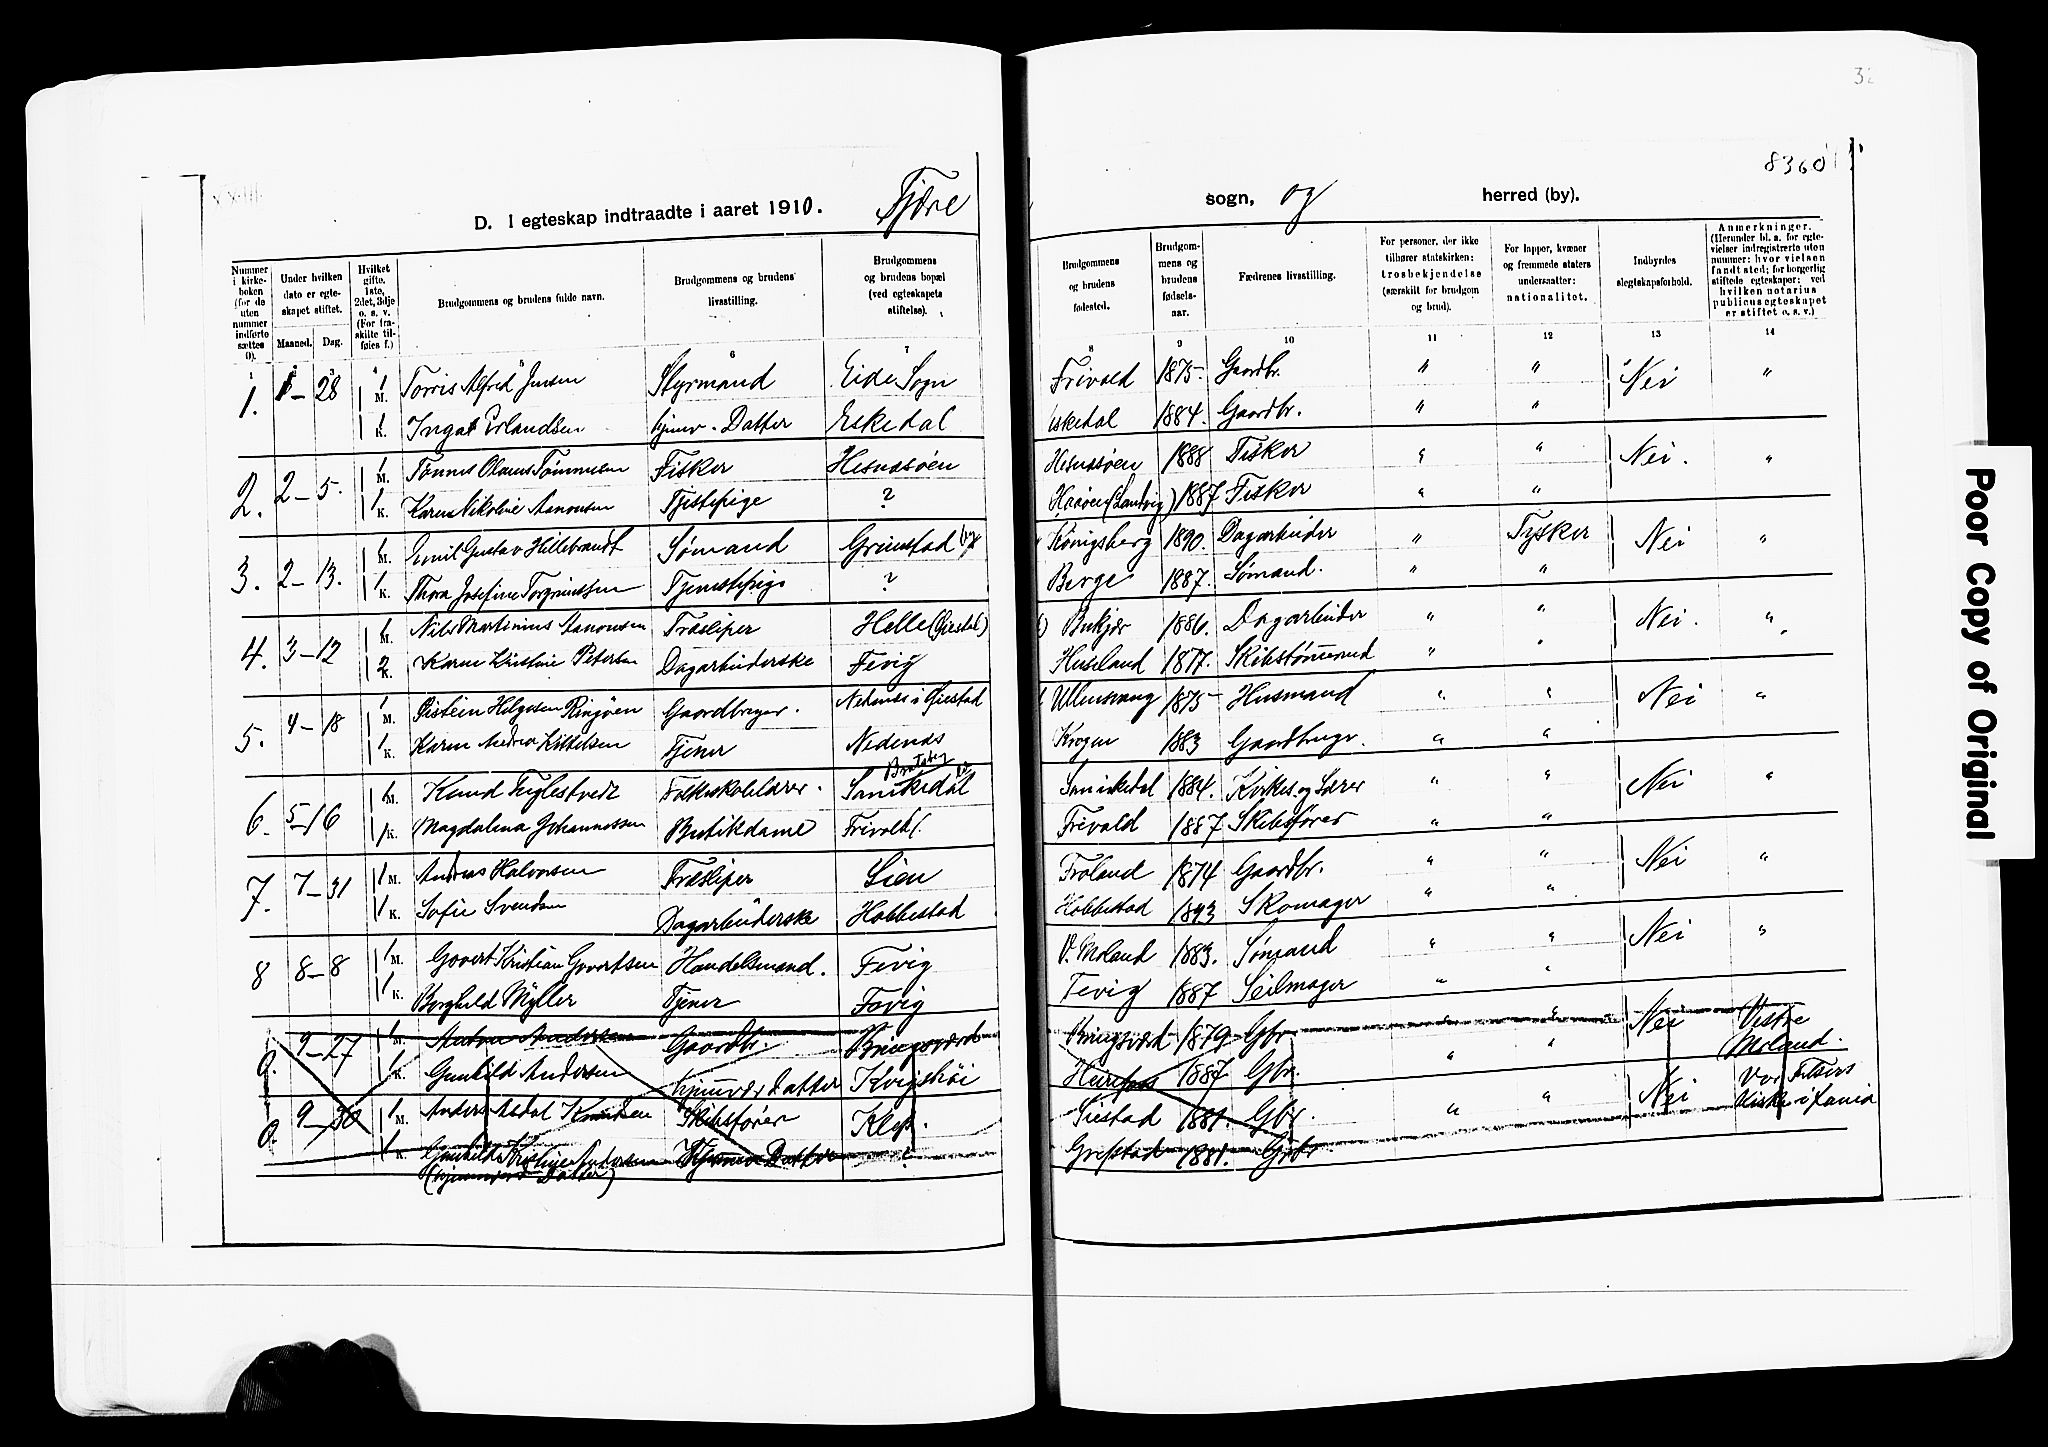 32
8360
D. I egteskap indtraadte i aaret 1910. Fjære sogn, og herred (by).
Nummer i kirkeboken (for de uten nummer indførte sættes 0).
Under hvilken dato er egteskapet stiftet.
Maaned. Dag.
Hvilket gifte. 1ste, 2det, 3dje o. s. v. (For fraskilte tilføies f.)
Brudgommens og brudens fulde navn.
Brudgommens og brudens livsstilling.
Brudgommens og brudens bopæl (ved egteskapets stiftelse).
Brudgommens og brudens fødested.
Brudgommens og brudens fødselsaar.
Fædrenes livsstilling.
For personer, der ikke tilhører statskirken: trosbekjendelse (særskilt for brudgom og brud).
For lapper, kvæner og fremmede staters undersaatter: nationalitet.
Indbyrdes slegtskapsforhold.
Anmerkninger. (Herunder bl. a. for egtevielser indregistrerte uten nummer: hvor vielsen fandt sted; for borgerlig stiftede egteskaper: ved hvilken notarius publicus egteskapet er stiftet o. s. v.)
1 2 3 4 5 6 7 8 9 10 11 12 13 14
1. 1–28 1 M. Torris Alfred Jensen Styrmand Eide Sogn Frivold 1875 Gaardbr. " " Nei "
1 K. Inga Erlandsen hjemv. Datter Eskedal Eskedal 1884. Gaardbr. " "
2. 2–5. 1 M. Tønnes Olaus Tønnesen Fisker Hesnesøen Hesnesøen 1888 Fisker " " Nei. "
1 K. Karen Nikoline Aanonsen Tjestepige ? (Landvig) 1887 Fisker " "
3. 2–13. 1 M. Emil Gustav Hillebrandt Sømand Grimstad by Kønigsberg 1890. Dagarbeider " Tysker Nei "
1 K. Thora Josefine Torgrimsen Tjenestepige ? Berge 1887. Sømand. " "
4. 3–12 1 M. Nils Martinius Aanonsen Træsliper Helle (Øiestad) 1886. Dagarbeider " " Nei. "
2 K. Karen Kristine Petersen Dagarbeiderske Fevig 1877. Skibstømmermd " "
5. 4–18 1 M. Øistein Helgesen Ringøen Gaardbruger. Nedenes i Øiestad Ullensvang 1875 Husmand " " Nei "
1 K. Karen Andrea Kittelsen Tjener Nedenes Krogen 1883 Gaardbrugr. " "
6. 5–16 1 M. Knud Fuglestvedt Folkeskolelærer. Bratsberg Sannikedal Sannikedal 1884. Kirkes. og Lærer " " Nei "
1 K. Magdalena Johannessen Butikdame Frivold Frivold 1887 Skibsfører " "
7. 7–31 1 M. Andreas Halvorsen Træsliper Lien Froland 1874 Gaardbr. " " Nei "
1 K. Sofie Svendsen Dagarbeiderske Hobbestad Hobbestad 1893 Skomager " "
8 8–8 1 M. Govert Kristian Govertsen Handelsmand. Fevig V. Moland 1883. Sømand " " Nei "
1 K. Borghild Myller Tjener Fevig Fevig 1887 Seilmager " "
0. 9–27 1 M. Andersen Gaardbr. Bringsværd Bringsværd 1879 Gbr. " " Nei Vestre Moland.
1 K. Gunhild Andersen hjemvær Datter Kvigshøi 1887 Gbr. " "
0. 9–30 1 M. Anders Aadal Knudsen Skibsfører Klep. 1881. Gbr. " " Nei Vor Frelsers Kirke i Xania
1 K. Gunhilde Andersen Hjemmev Datter ? Grefstad 1881. Gbr.
(hjemmevær Datter)
Poor Copy of Original